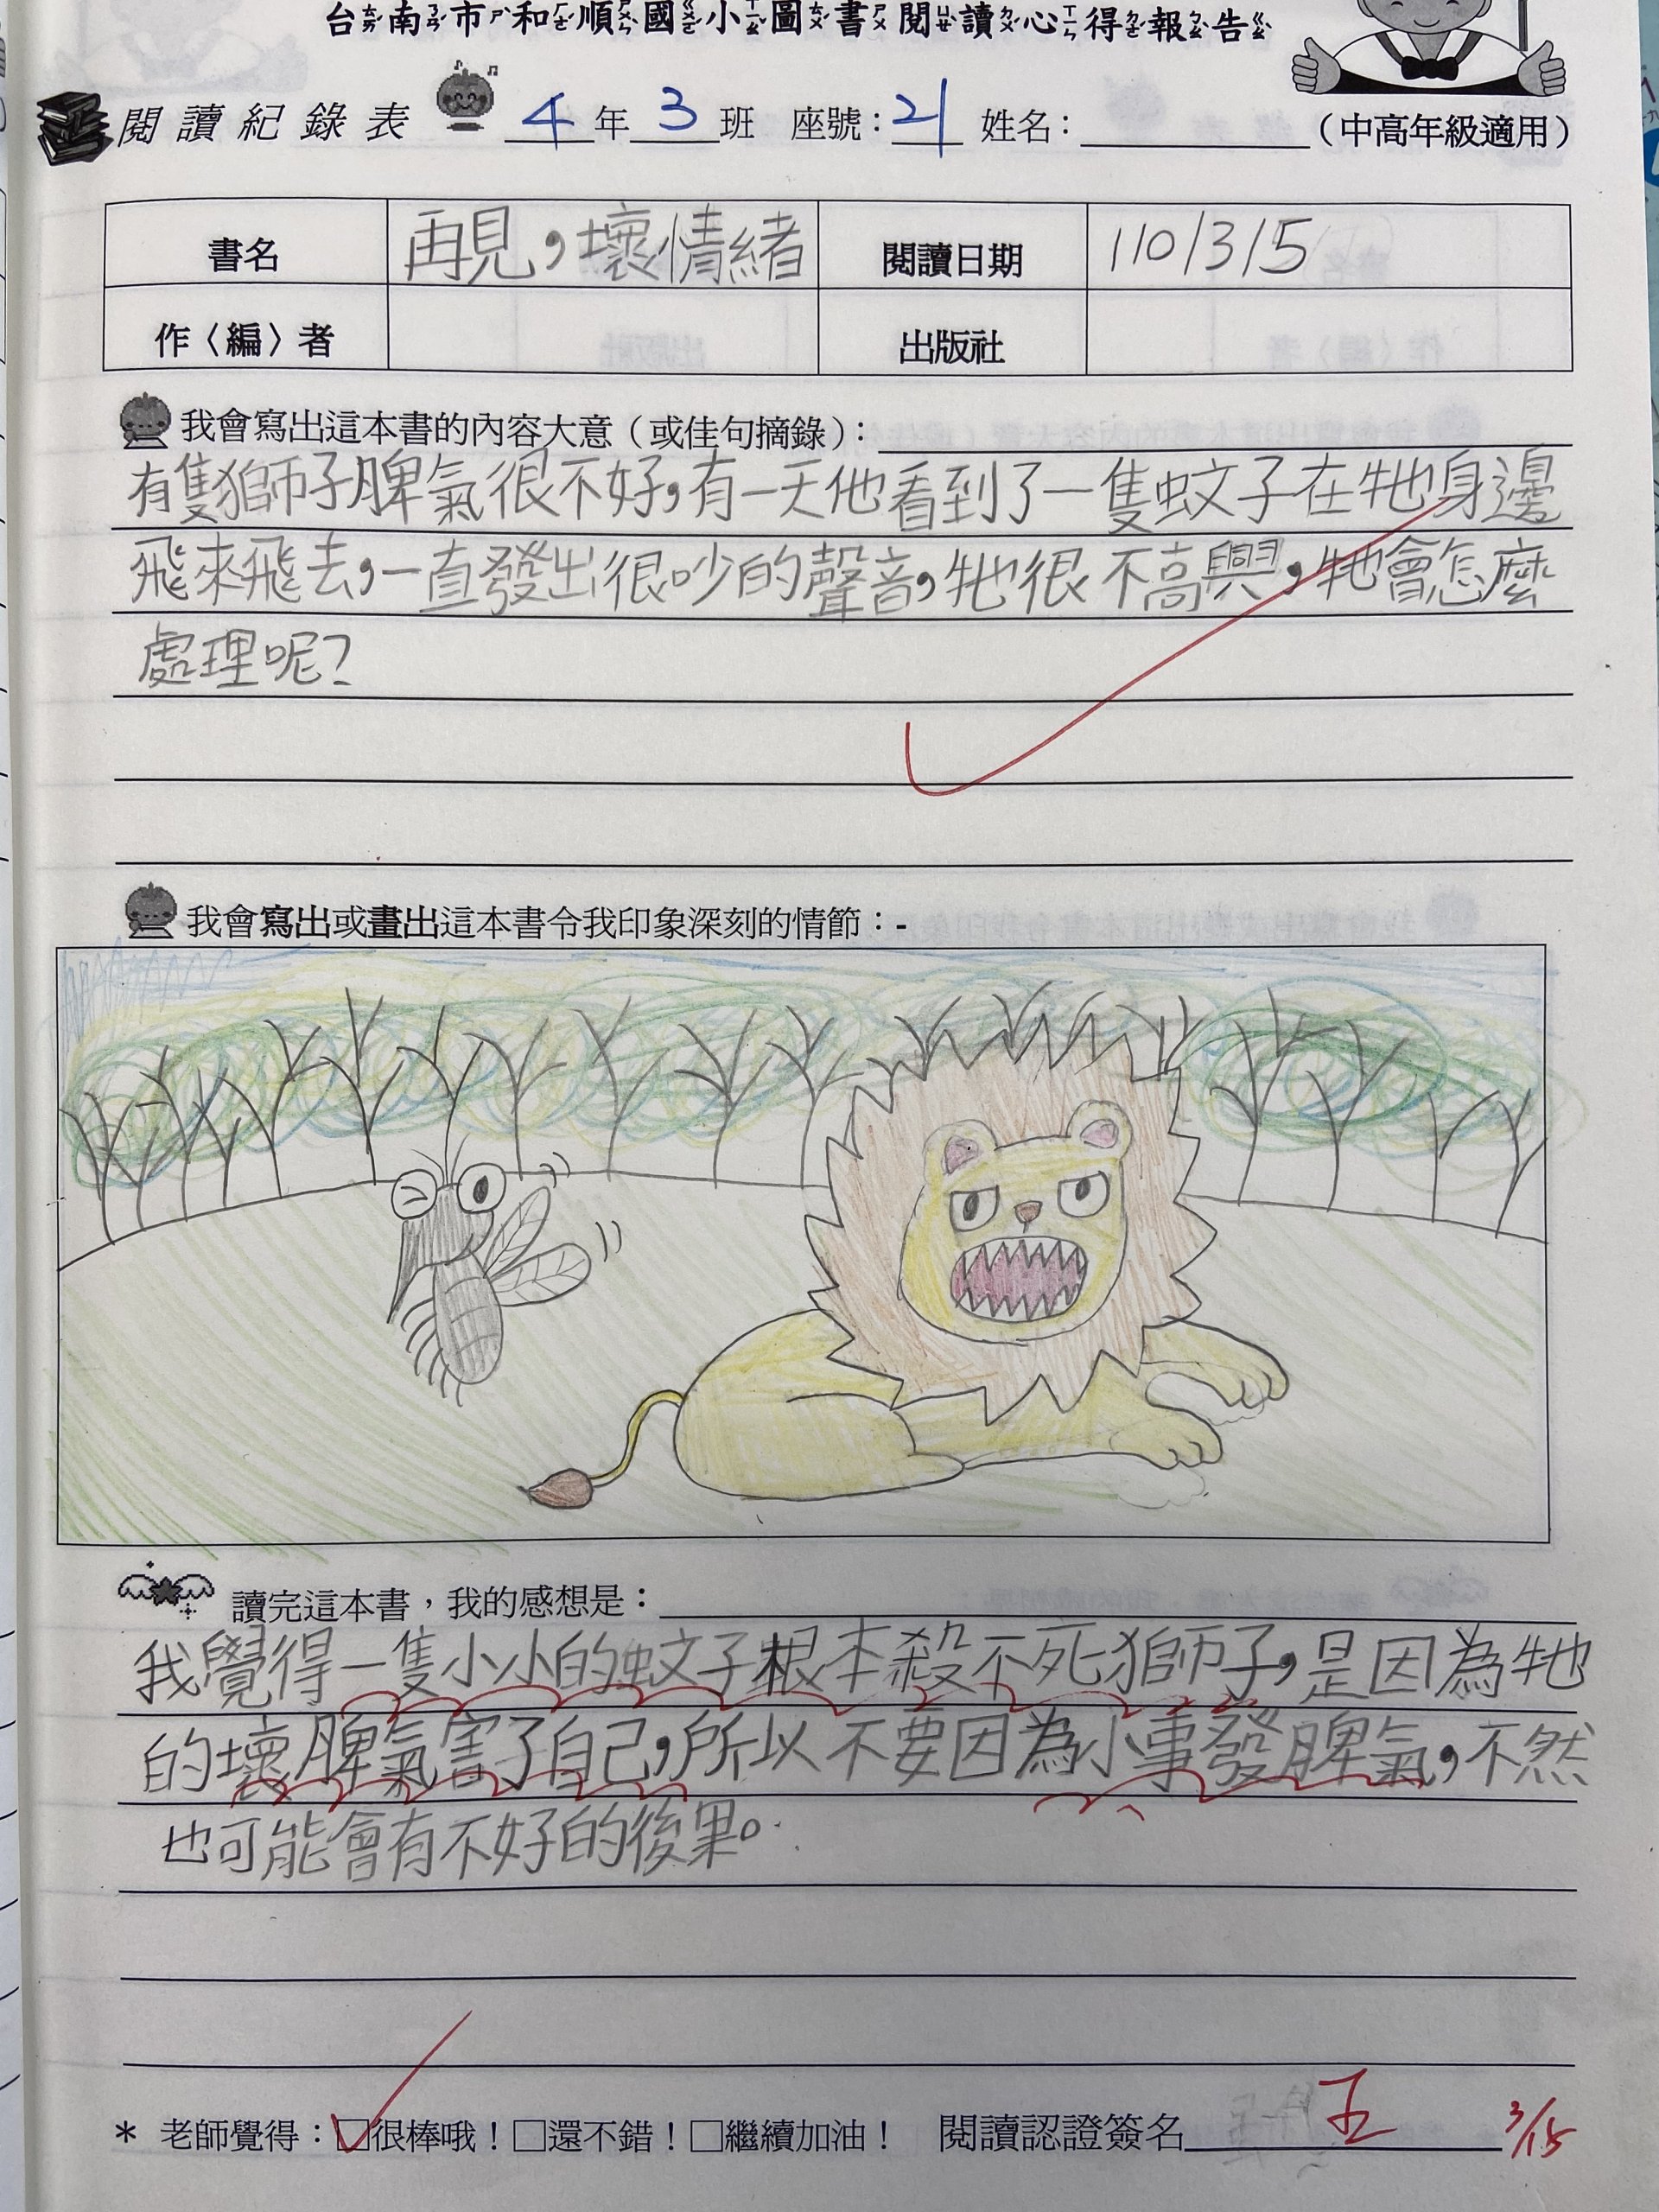 台南市和順國小圖書閱讀心得報告
閱讀紀錄表 4年3班 座號：21 姓名：（中高年級適用）
書名 再見，壞情緒 閱讀日期 110/3/5
作〈編〉者 出版社
我會寫出這本書的內容大意（或佳句摘錄）：
有隻獅子脾氣很不好，有一天他看到了一隻蚊子在牠身邊
飛來飛去，一直發出很吵的聲音，牠很不高興，牠會怎麼
處理呢？
我會寫出或畫出這本書令我印象深刻的情節：-
讀完這本書，我的感想是：
我覺得一隻小小的蚊子根本殺不死獅子，是因為牠
的壞脾氣害了自己，所以不要因為小事發脾氣，不然
也可能會有不好的後果。
* 老師覺得：□很棒哦！□還不錯！□繼續加油！ 閱讀認證簽名 王 3/15